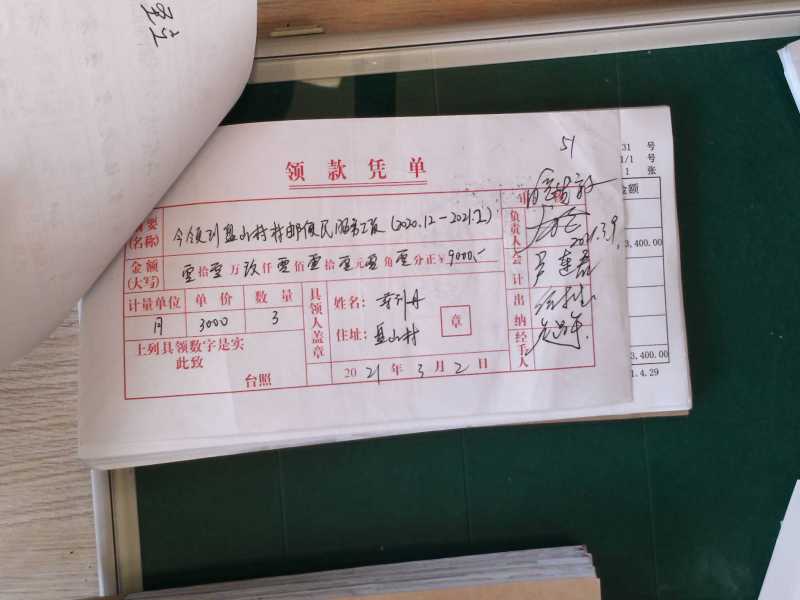 51
领款凭单
31 号
1/1 号
1 张
金额
摘要(名称) 今领到盘山村村邮便民服务工资(2020.12-2021.2)
金额(大写) 零拾零万玖仟零佰零拾零元零角零分正¥9000.-
计量单位 单价 数量
月 3000 3
上列具领数字是实
此致
台照
具领人盖章
姓名:
住址:盘山村
章
2021年3月2日
负责人
2021.3.9
会计
出纳
经手人
3,400.00
3,400.00
1.4.29